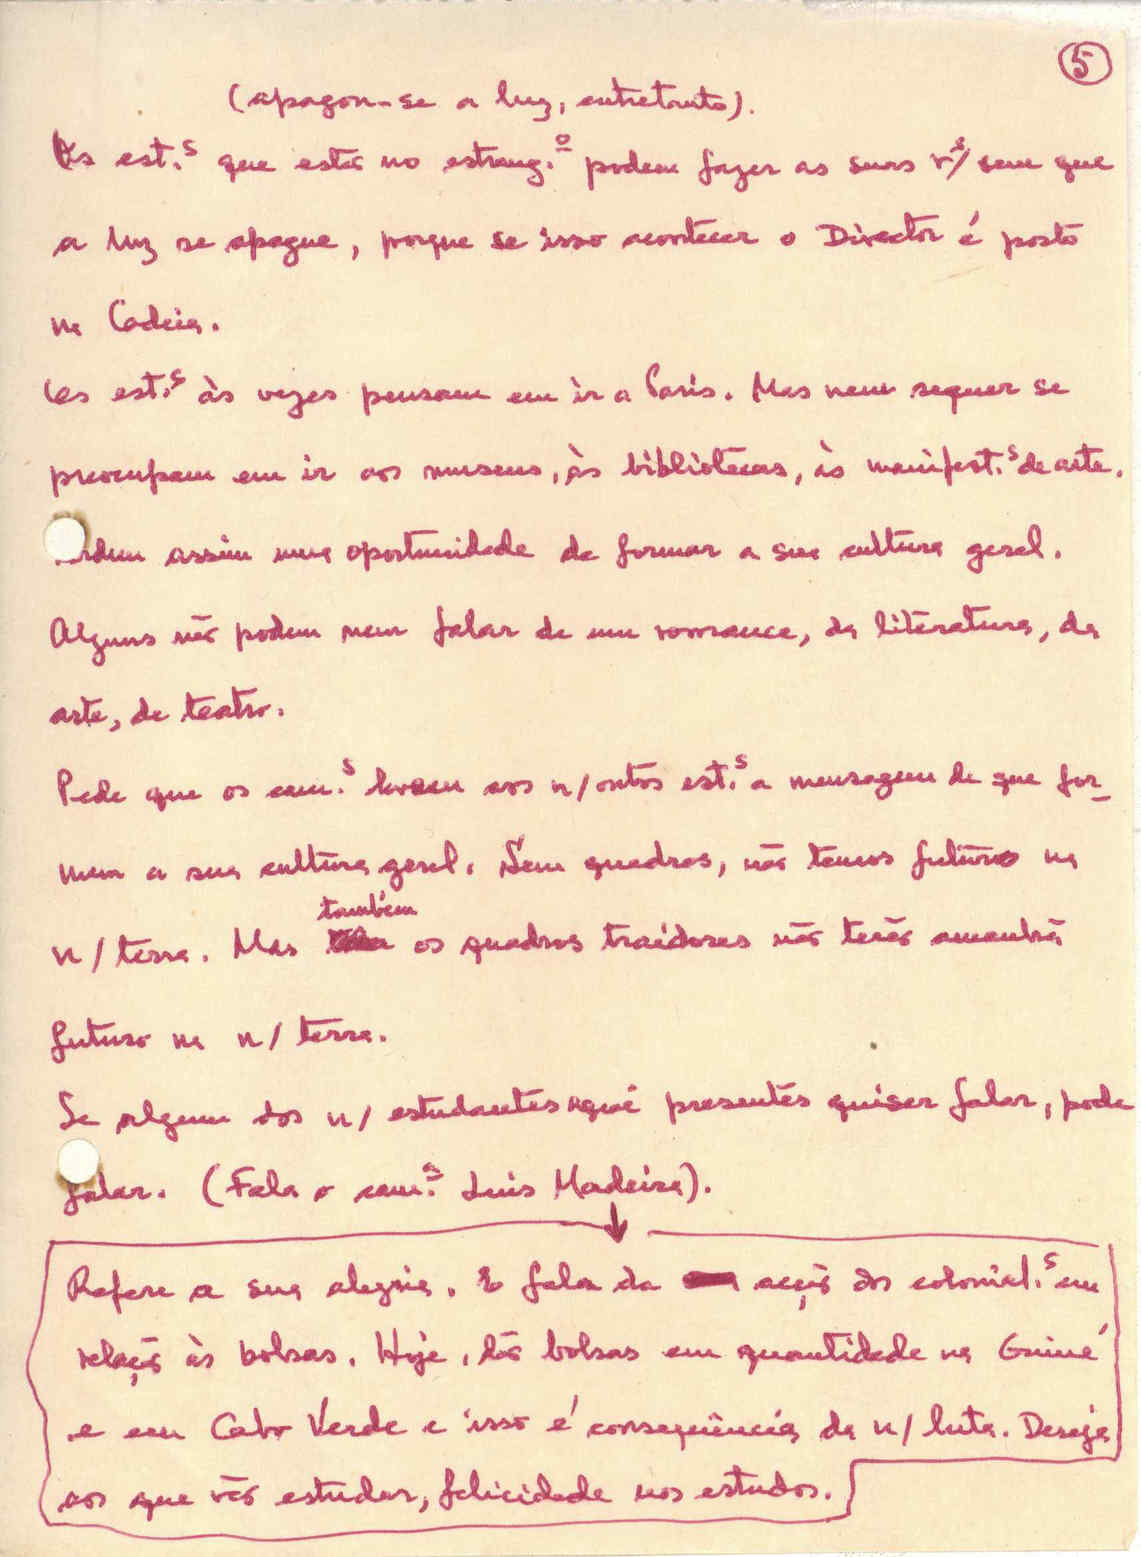 5
(apagou-se a luz, entretanto).
Os est.s que estão no estrang.º podem fazer as suas r.s/ sem que
a luz se apague, porque se isso acontecer o Director é posto
na Cadeia.
Os est.s às vezes pensam em ir a Paris. Mas nem sequer se
preocupam em ir aos museus, às bibliotecas, às manifest.s de arte.
assim uma oportunidade de formar a sua cultura geral.
Alguns não podem nem falar de um romance, da literatura, da
arte, de teatro.
Pede que os cam.s levem aos n/outros est.s a mensagem de que for-
mem a sua cultura geral. Sem quadros, não temos futuro na
n/ terra. Mas também os quadros traidores não terão amanhã
futuro na n/ terra.
Se algum dos n/ estudantes aqui presentes quiser falar, pode
falar. (Fala o cam.a Luís Madeira).
Refere a sua alegria. E fala da acção dos colonial.s em
relação às bolsas. Hoje, dão bolsas em quantidade na Guiné
e em Cabo Verde e isso é consequência da n/ luta. Deseja
aos que vão estudar, felicidade nos estudos.